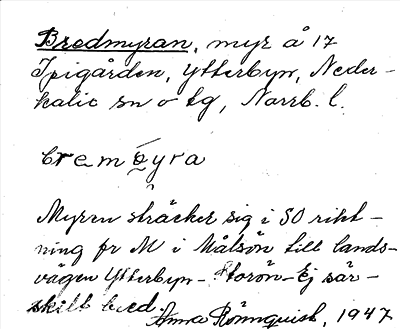 Bredmyran, myr å 17
Spigården, Ytterbyn, Neder-
kalix sn o tg, Norrb. l.
bremȯyra
Myren sträcker sig i SO rikt-
ning fr M i Målsön till lands-
vägen Ytterbyn-Storön. Ej sär-
skilt bred.
Anna Rönnquist, 1947